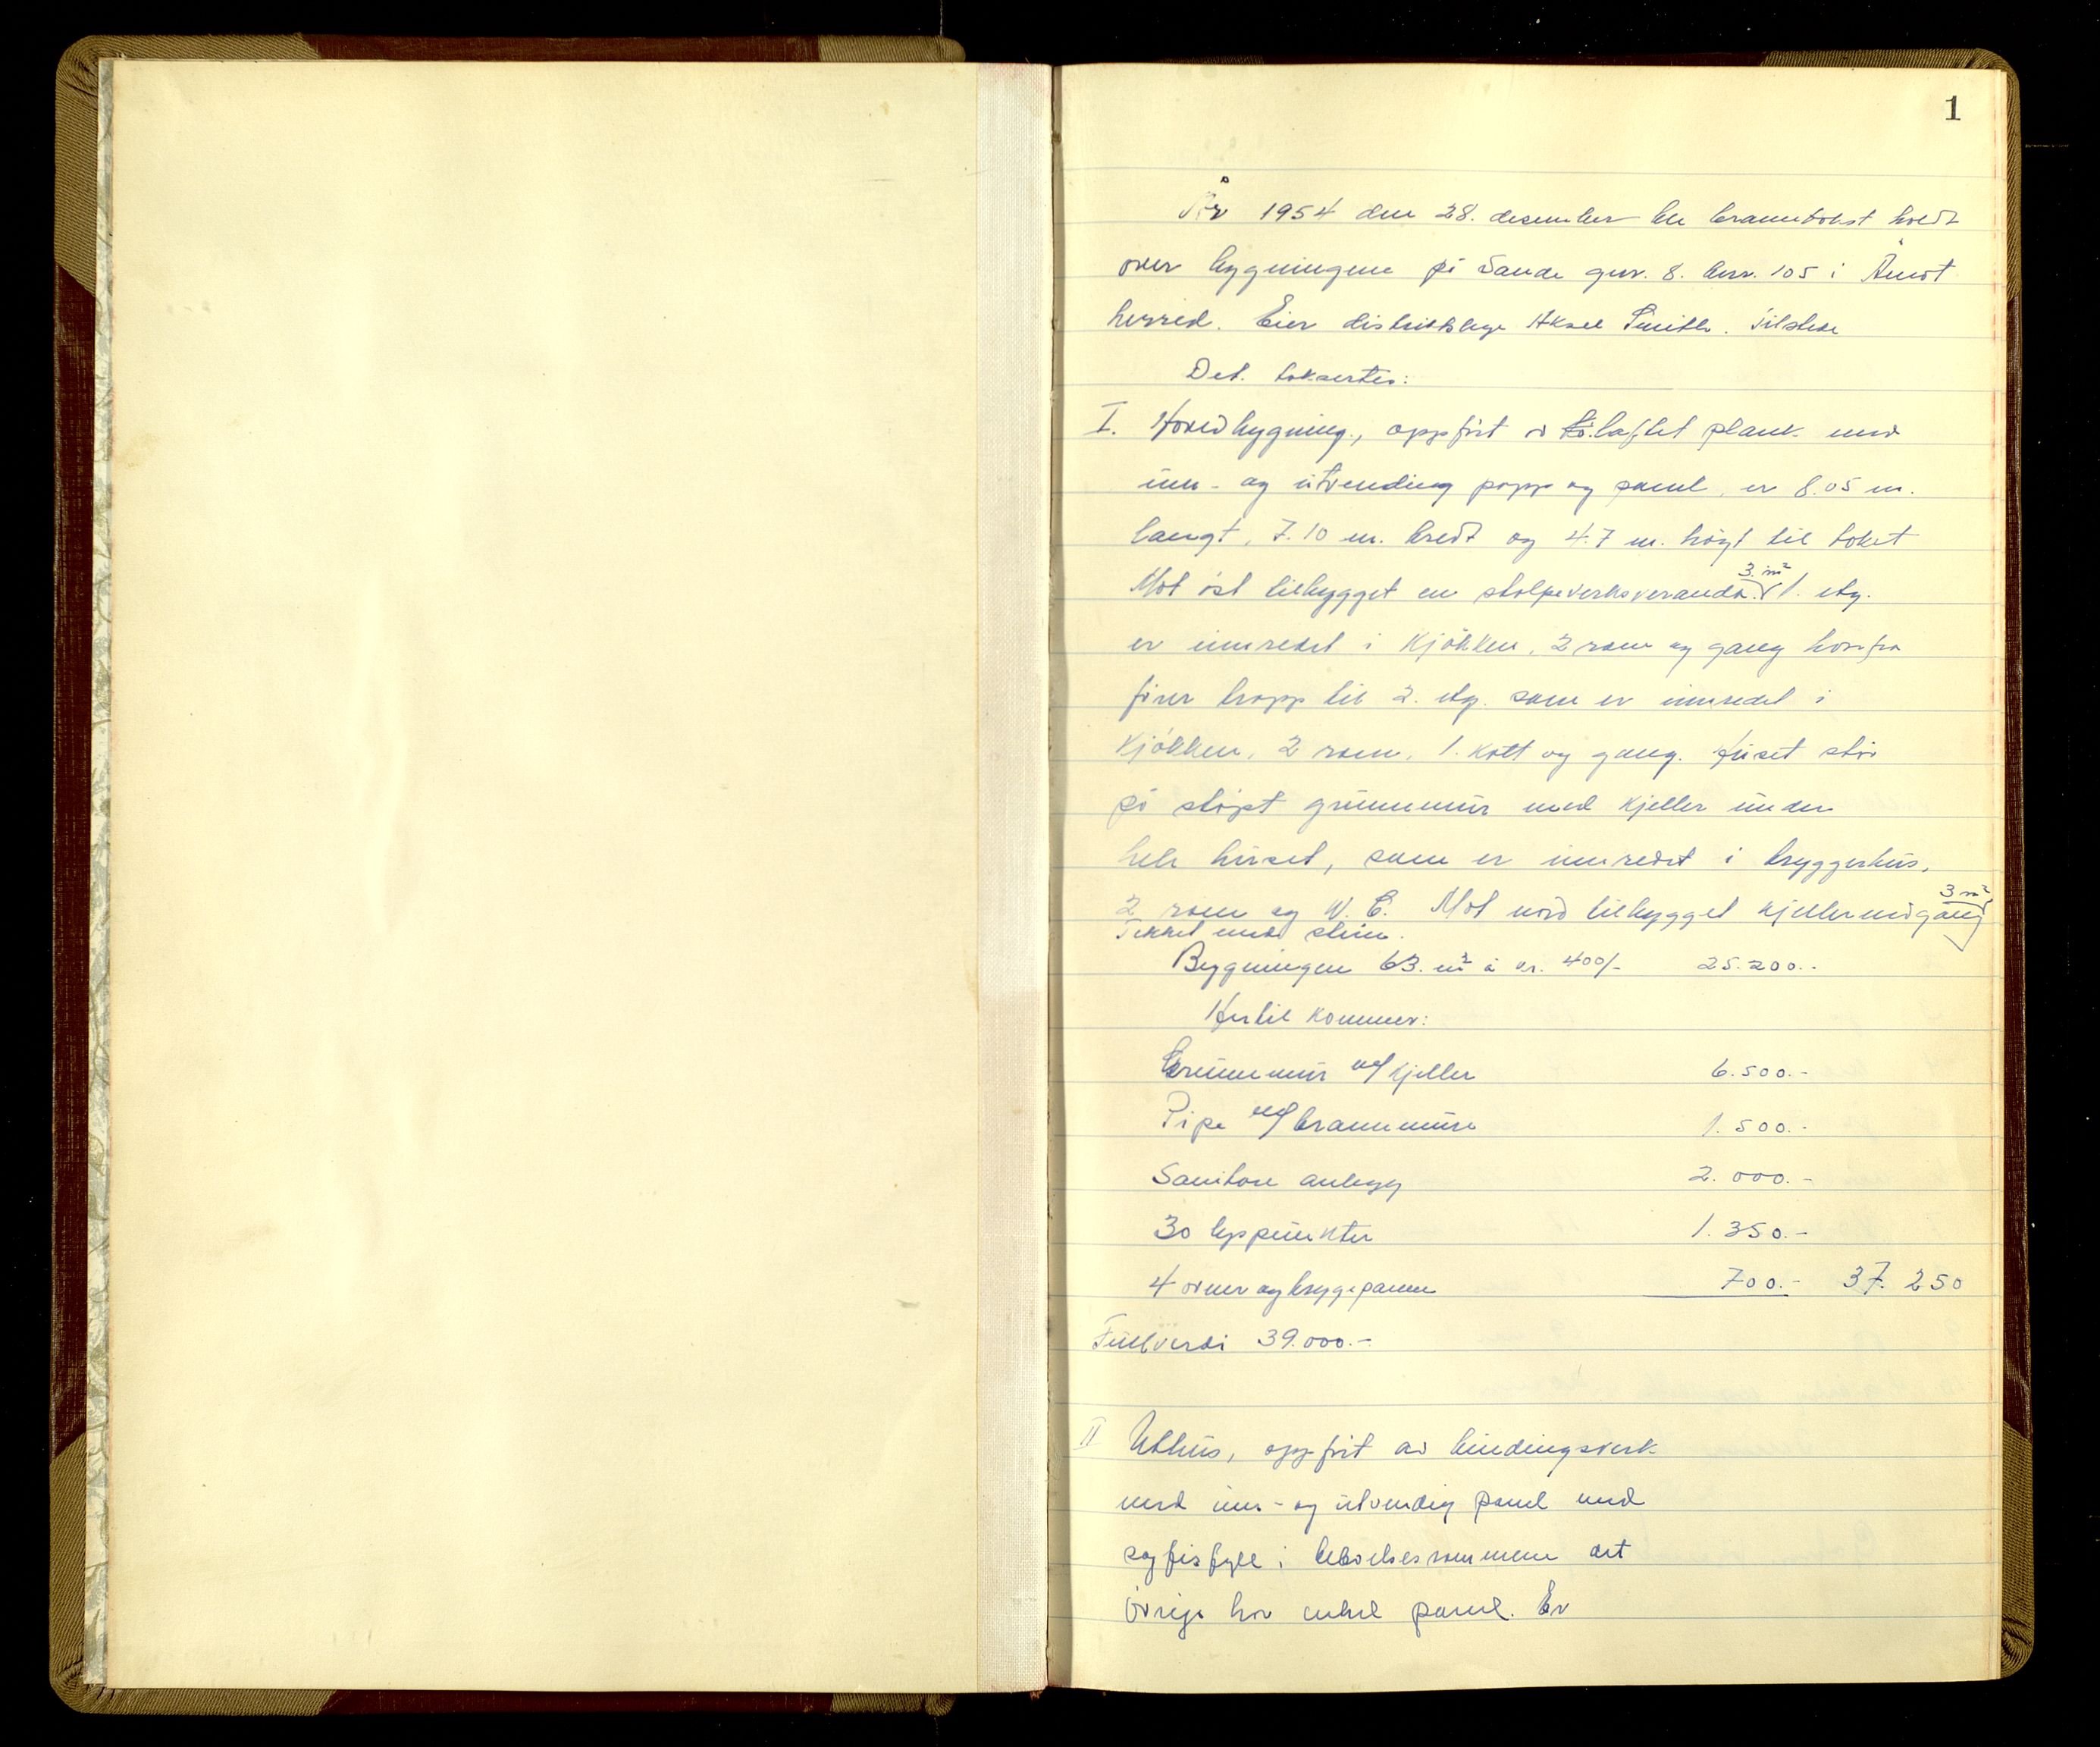 1
År 1954 den 28. desember ble branntakst holdt
over bygningene på Sande gnr. 8. bnr. 105 i Åmot
herred. Eier distriktslege Aksel Smith. Tilstede
Det taksertes:
I. Hovedbygning, oppført av laftet plank med
inn- og utvending papp og panel, er 8.05 m.
langt, 7.10 m. bredt og 4.7 m. høgt til taket
Mot øst tilbygget en stolpeverksveranda 3 m² 1. etg.
er innredet i kjøkken, 2 rom og gang hvorfra
fører trapp til 2. etg. som er innredet i
kjøkken, 2 rom, 1. kott og gang. Huset står
på støpt grunnmur med kjeller under
hele huset, som er innredet i bryggerhus,
2 rom og W.C. Mot nord tilbygget kjellernedgang 3 m²
Tekket med stein.
Bygningen 63. m² à kr. 400/- 25.200.-
Hertil kommer:
Grunnmur m/kjeller 6.500.-
Pipe m/brannmure 1.500.-
Sanitære anlegg 2.000.-
30 lyspunkter 1.350.-
4 ovner og bryggepanne 700.- 37.250
Fullverdi 39.000.-
II Uthus, oppført av bindingsverk
med inn- og utvendig panel med
sagflisfyll i beboelsesrommene det
øvrige har enkel panel. Er